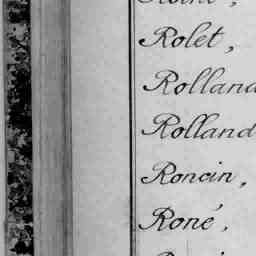 Rolet,
Rolland
Rolland
Roncin,
Roné,